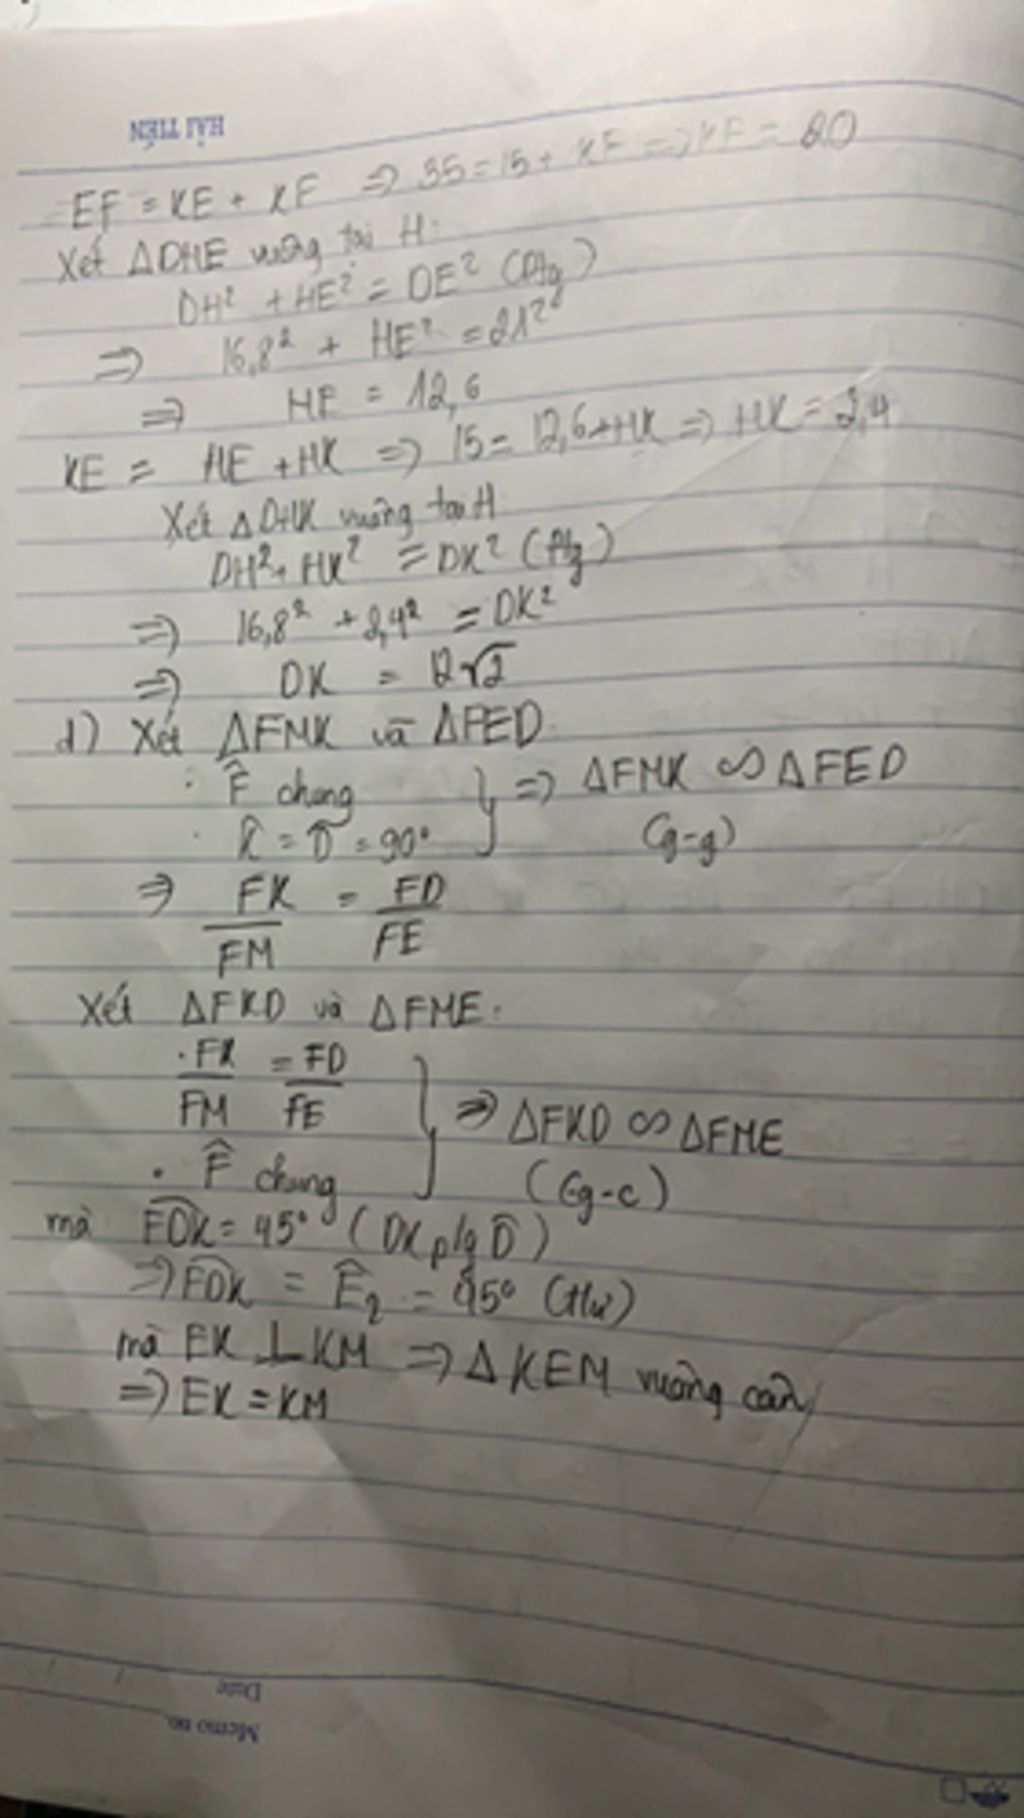 HẢI TIẾN
EF = KE + KF => 35 = 15 + KF => KF = 20
Xét ΔDHE vuông tại H:
DH² + HE² = DE² (Ptg)
=> 16,8² + HE² = 21²
=> HE = 12,6
KE = HE + HK => 15 = 12,6 + HK => HK = 2,4
Xét ΔDHK vuông tại H
DH² + HK² = DK² (Ptg)
=> 16,8² + 2,4² = DK²
=> DK = 12√2
d) Xét ΔFMK và ΔFED
F̂ chung
K̂ = D̂ = 90° } => ΔFMK ∽ ΔFED
(g-g)
=> FK/FM = FD/FE
Xét ΔFKD và ΔFME.
. FK/FM = FD/FE
. F̂ chung } => ΔFKD ∽ ΔFME
(c-g-c)
mà F̂DK = 45° (DK p/g D̂)
=> F̂DK = Ê₂ = 45° (tlư)
mà EK ⊥ KM => ΔKEM vuông cân
=> EK = KM
Date
Memo no.